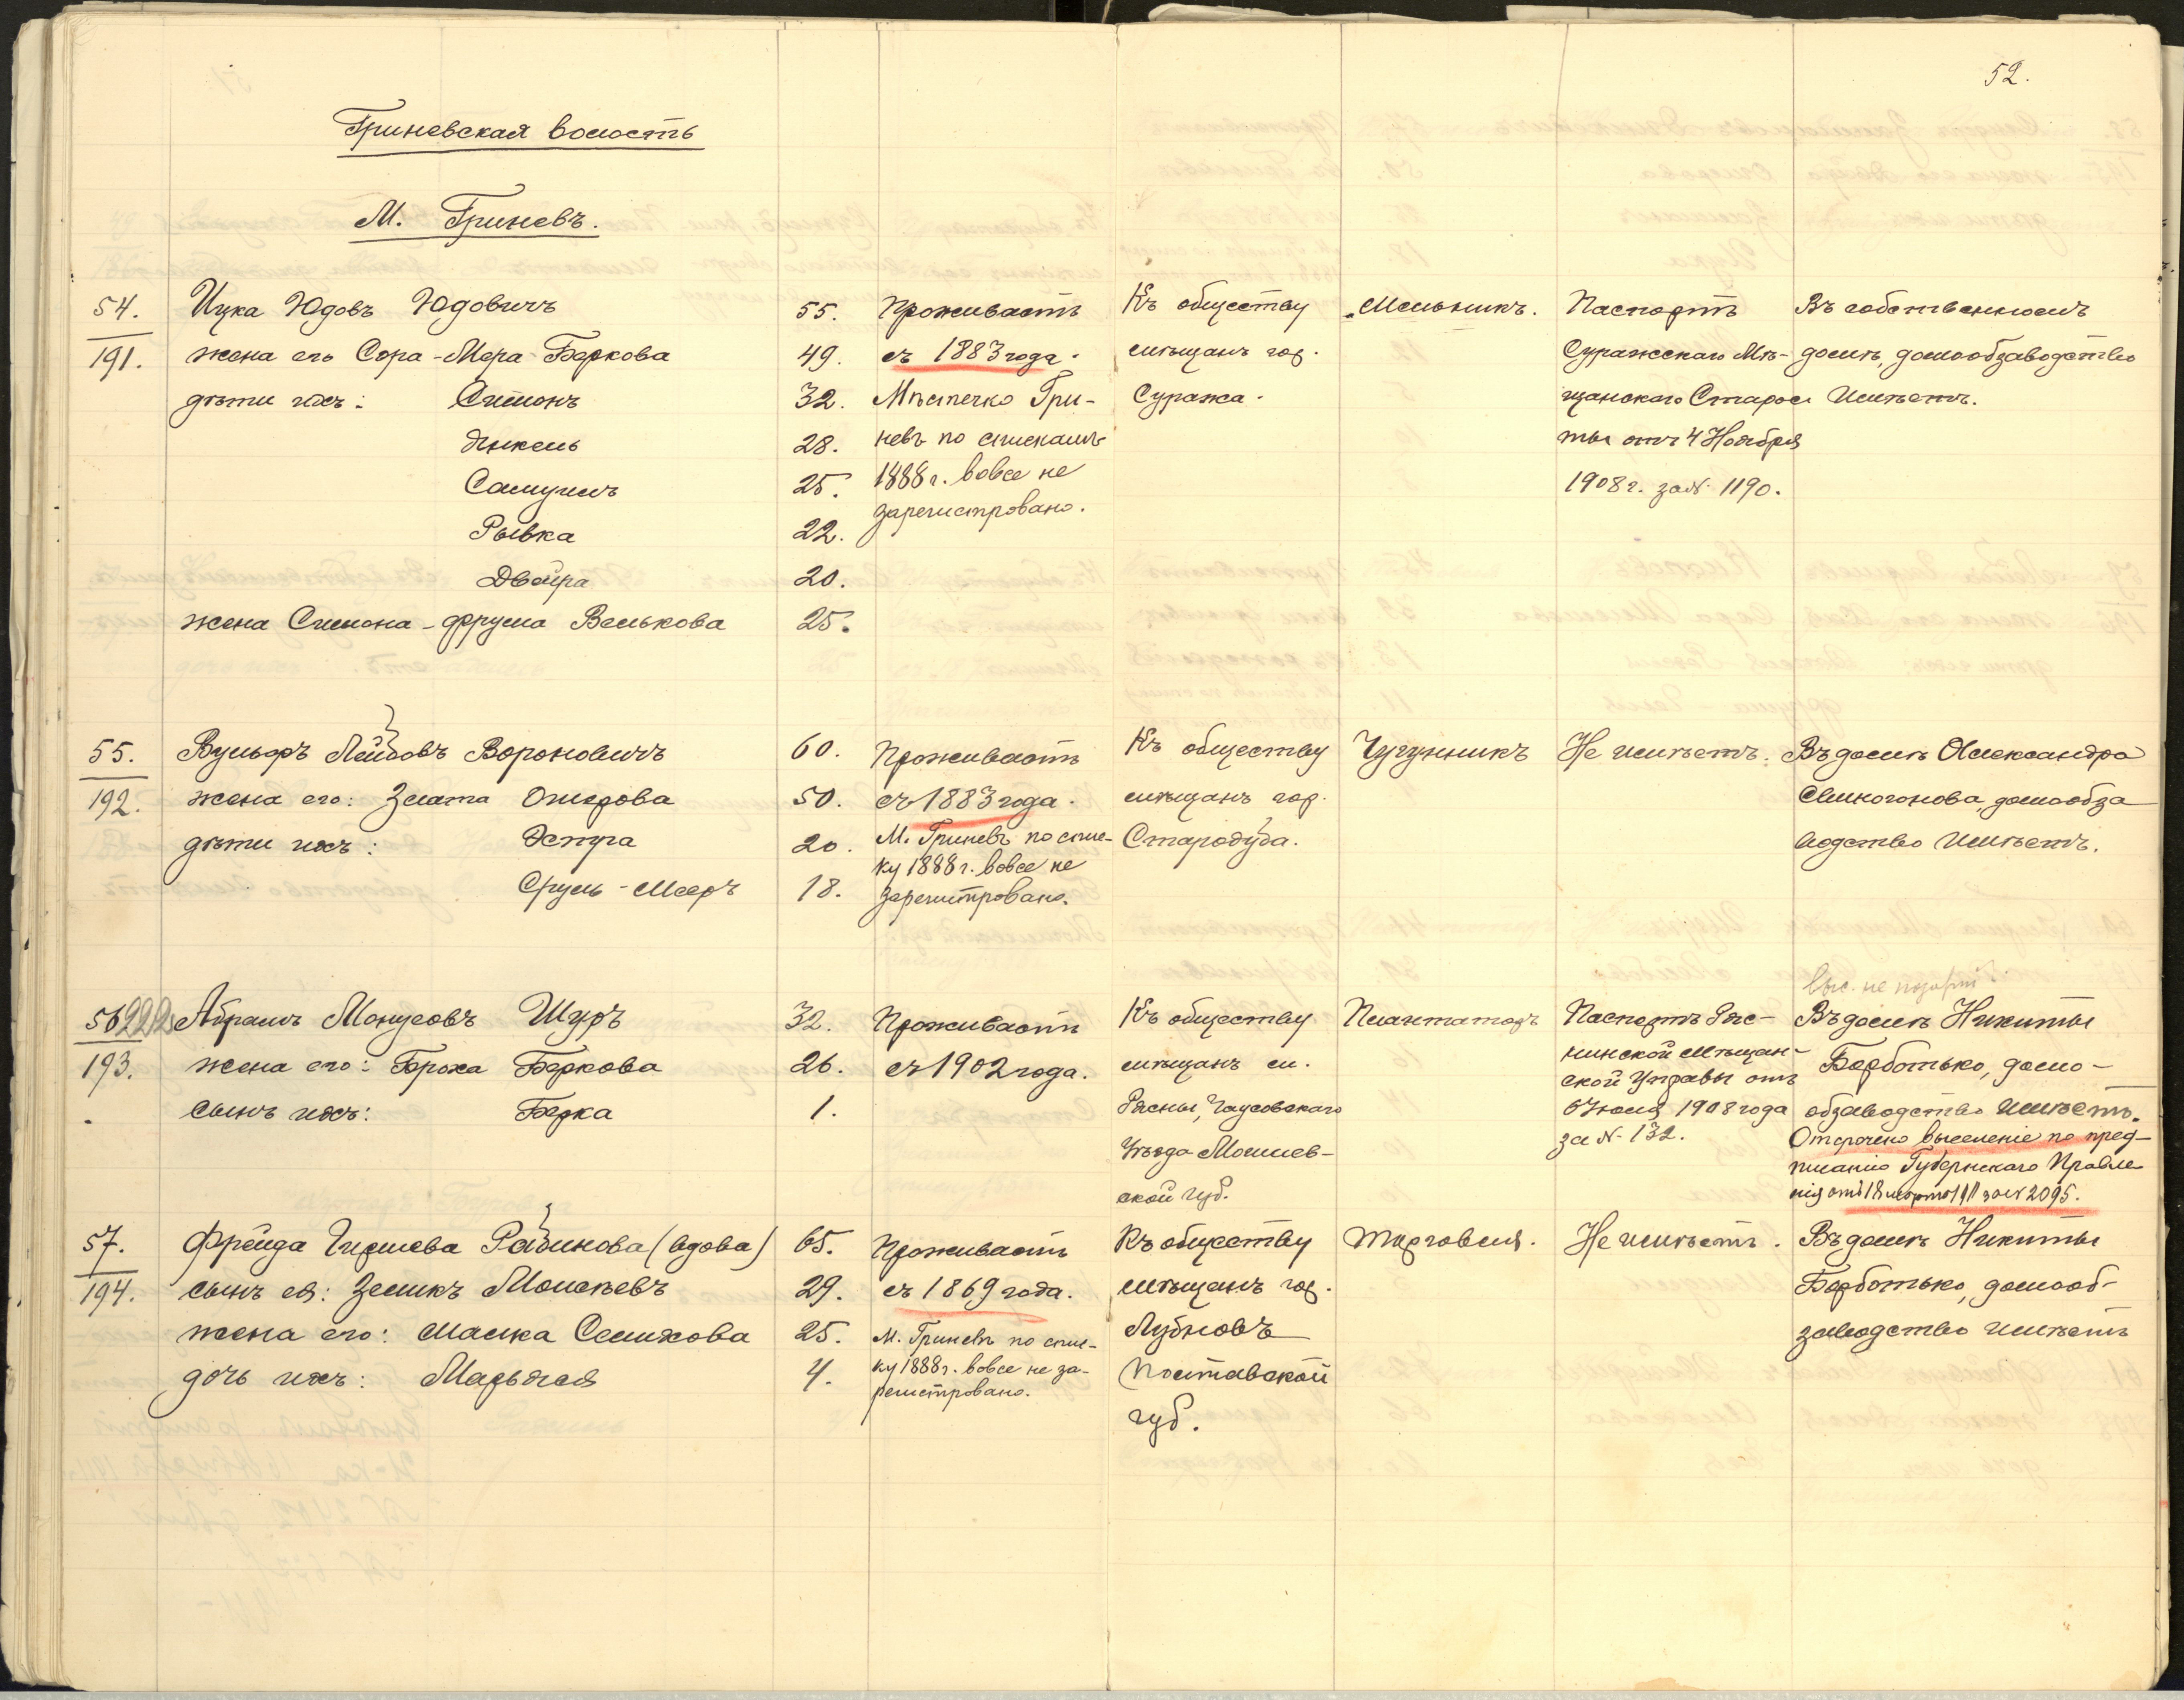 52.
Гриневская волость
М. Гриневъ.
54.
191.
Ицка Юдовъ Юдовичъ
жена его Сора-Мера Беркова
дѣти ихъ: Симонъ
Янкель
Самуилъ
Рывка
Двейра
жена Симона - Фрума Велькова
55.
49.
32.
28.
25.
22.
20.
25.
Проживаетъ
съ 1883 года.
Мѣстечко Гри-
невъ по спискамъ
1888 г. вовсе не
зарегистровано.
Къ обществу
мѣщанъ гор.
Суража.
Мельникъ.
Паспортъ
Суражскаго Мѣ-
щанскаго Старос
ты отъ 4 Ноября
1908 г. за № 1190.
Въ собственномъ
домѣ, домообзаводство
Имѣетъ.
55.
192.
Вульфъ Лейбовъ Вороновичъ
жена его: Злата Ошерова
дѣти ихъ: Эстра
Сруль-Мееръ
60.
50.
20.
18.
Проживаетъ
съ 1883 года.
М. Гриневъ по спис-
ку 1888 г. вовсе не
зарегистровано.
Къ обществу
мѣщанъ гор.
Стародуба.
Чугунникъ
Не имѣетъ.
Въ домѣ Александра
домообза
водство Имѣетъ.
56
193.
Абрамъ Монусовъ Шуръ
жена его: Броха Беркова
сынъ ихъ: Берка
32.
26.
1.
Проживаетъ
съ 1902 года.
Къ обществу
мѣщанъ м.
Рясны, Чаусовскаго
Уѣзда Могилев-
ской губ.
Плантаторъ
Паспортъ Ряс-
нинской Мѣщан-
ской Управы отъ
6 Іюля 1908 года
за № 132.
Въ домѣ Никиты
Борботько, домо-
обзаводство имѣетъ.
Отсрочено выселеніе по пред-
писанію Губернскаго Правле
нія отъ 18 марта 1911 за № 2095.
57.
194.
Фрейда Гиршева Рабинова (вдова)
сынъ ея: Зеликъ Моисѣевъ
жена его: Малка Селихова
дочь ихъ: Марьяся
65.
29.
25.
4.
Проживаетъ
съ 1869 года.
М. Гриневъ по спис-
ку 1888 г. вовсе не за-
регистровано.
Къ обществу
мѣщанъ гор.
Лубновъ
Полтавской
губ.
Торговля.
Не имѣетъ.
Въ домѣ Никиты
Борботько, домооб-
заводство имѣетъ